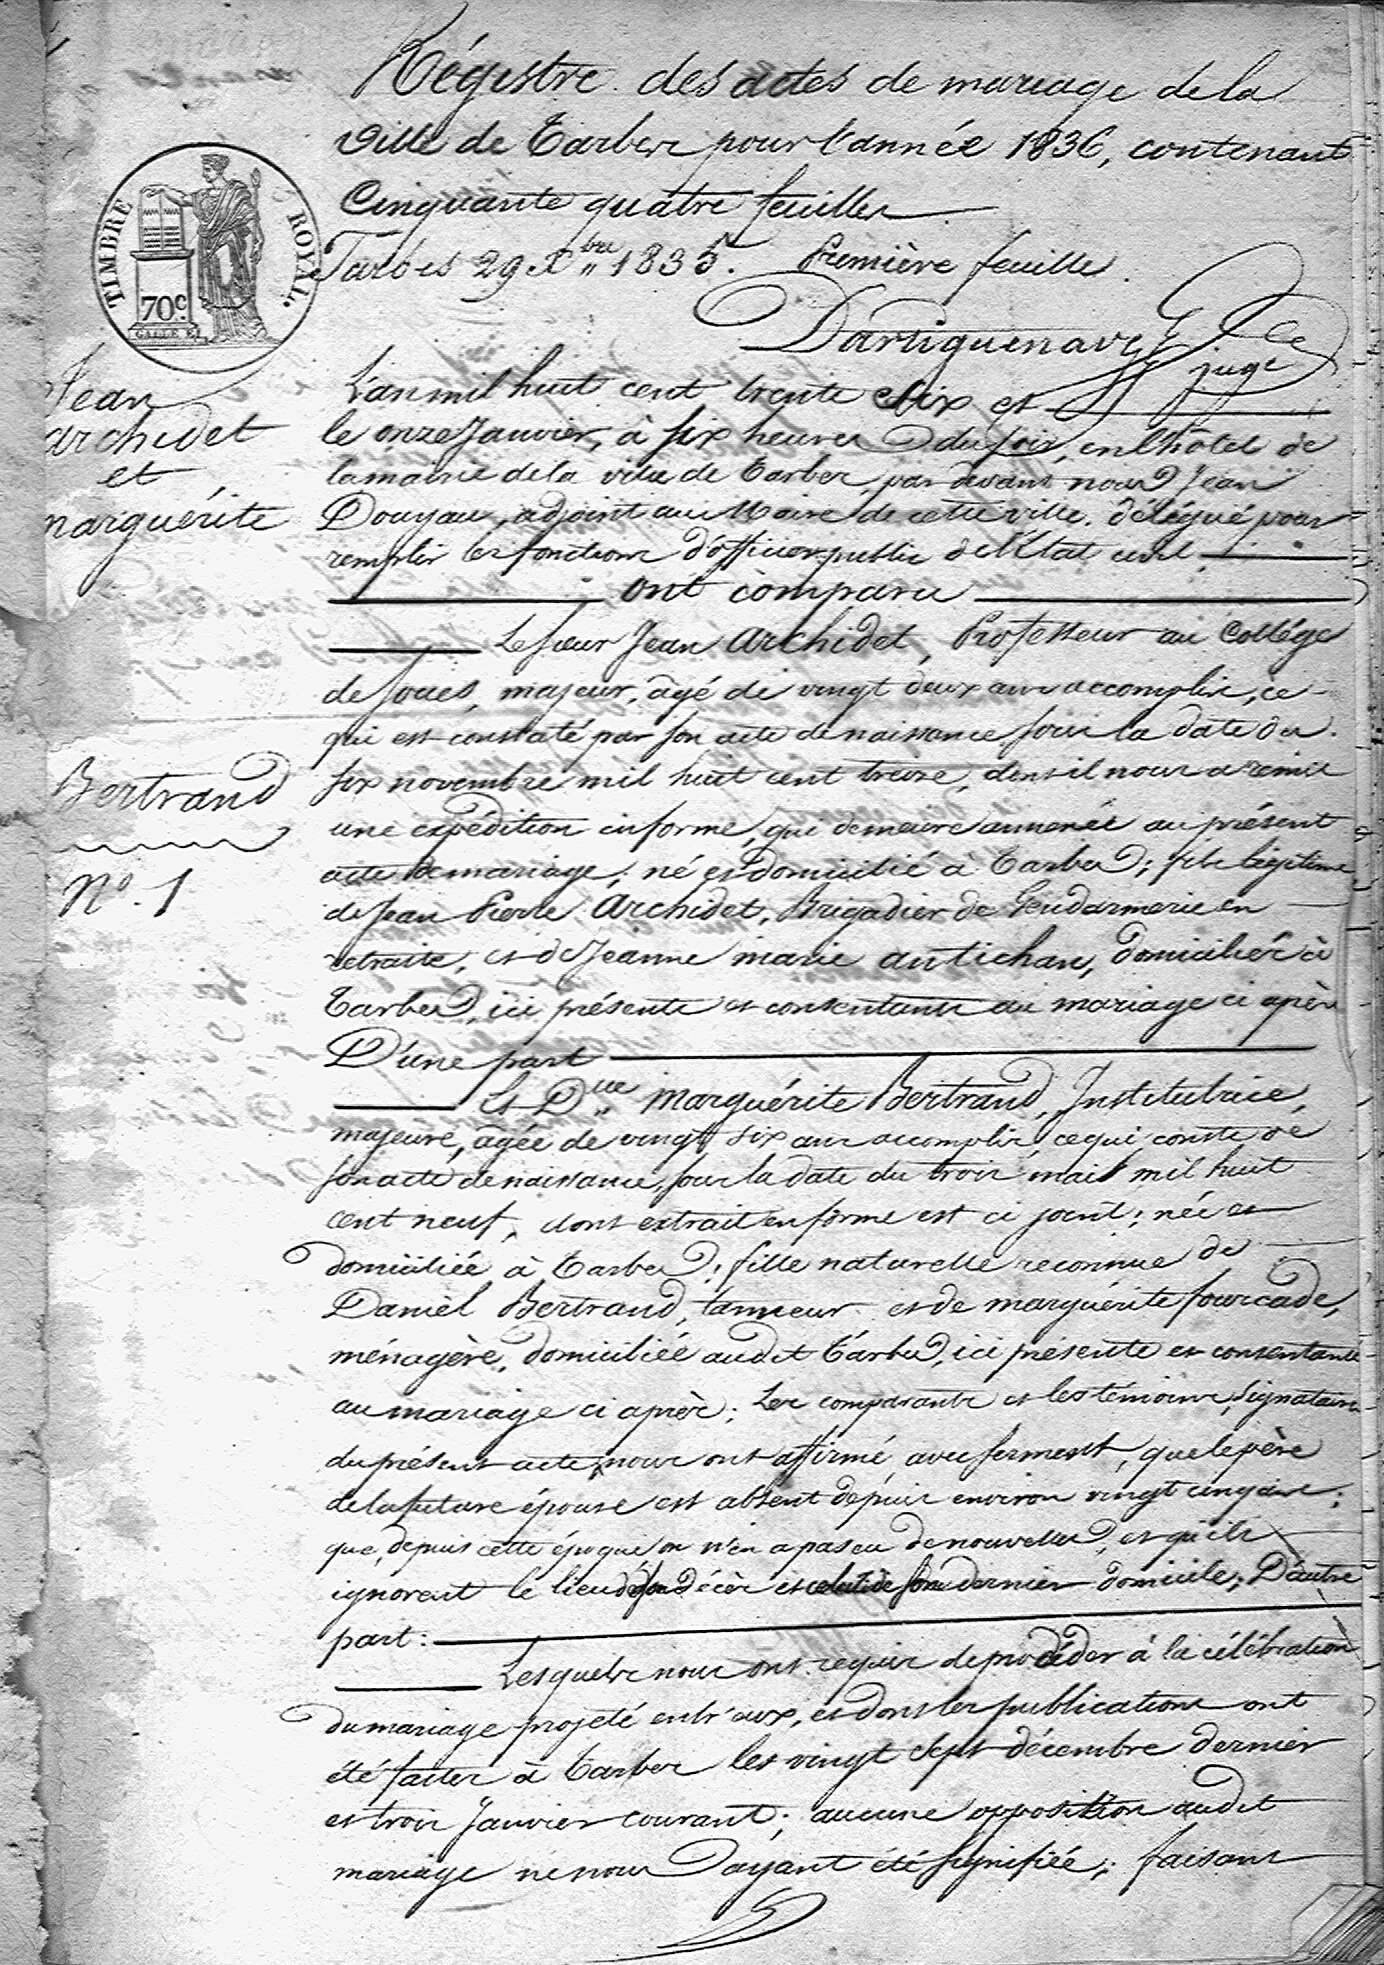 Régistre des actes de mariage de la
ville de Tarbes pour l'année 1836, contenant
Cinquante quatre feuilles
Tarbes 29 Xbre 1835. Première feuille.
TIMBRE ROYAL.
70c
Dartiguenave
juge
Jean
archidet
et
marguérite
Bertrand
N° 1
L'an mil huit cent trente Six et
le onze Janvier, à six heures du soir, en l'hôtel de
la mairie de la ville de Tarbes, par devant nous Jean
Douyau, adjoint au Maire de cette ville, délégué pour
remplir les fonctions d'officier public de l'État civil,
ont comparu
Le sieur Jean Archidet, Professeur au Collége
de , majeur, âgé de vingt deux ans accomplis, ce
qui est constaté par son acte de naissance sous la date du
six novembre mil huit cent treize, dont il nous a remis
une expédition en forme, qui demeure annexée au présent
acte de mariage; né et domicilié à Tarbes; fils légitime
de Jean Pierre Archidet, Brigadier de Gendarmerie en
retraite, et de Jeanne marie antichan, domiciliés à
Tarbes, ici présents et consentants au mariage ci après
D'une part
Et Dlle marguérite Bertrand, Institutrice,
majeure, âgée de vingt six ans accomplis, ce qui conste de
son acte de naissance, sous la date du trois mai mil huit
cent neuf, dont extrait en forme est ci joint; née et
domiciliée à Tarbes; fille naturelle reconnue de
Daniel Bertrand, tanneur et de marguérite fourcade,
ménagère, domiciliée audit Tarbes, ici présente et consentante
au mariage ci après; Les comparants et les témoins signataires
du présent acte, nous ont affirmé avec serment, que le père
de la future épouse est absent depuis environ vingt cinq ans;
que, depuis cette époque on n'en a pas eu de nouvelles, et qu'ils
ignorent le lieu de son décès et celui de son dernier domicile; D'autre
part:
Lesquels nous ont requis de procéder à la célébration
du mariage projeté entr'eux, et dont les publications ont
été faites à Tarbes les vingt Sept décembre dernier
et trois Janvier courant; aucune opposition audit
mariage ne nous ayant été signifiée; faisant